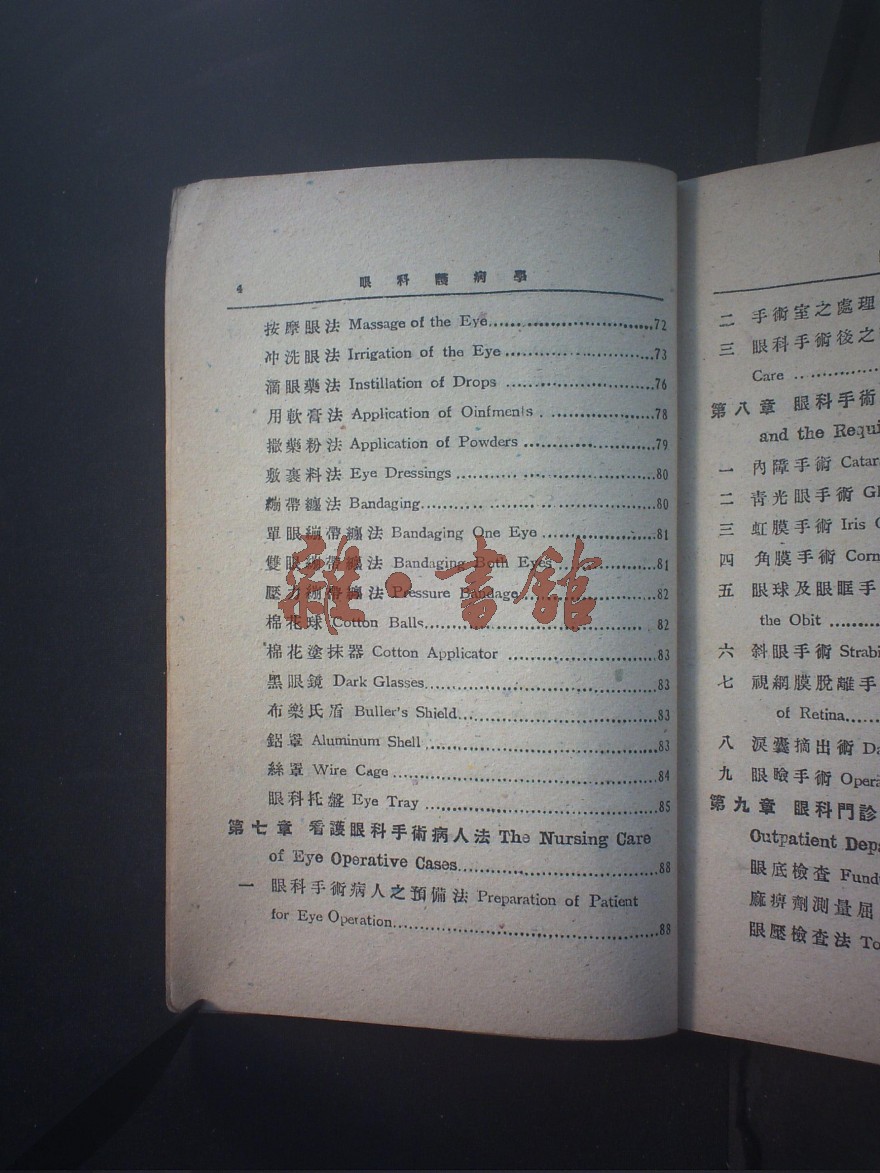 4 眼科護病學
按摩眼法 Massage of the Eye..............................72
冲洗眼法 Irrigation of the Eye..............................73
滴眼藥法 Instillation of Drops..............................76
用軟膏法 Application of Oinfments..............................78
撒藥粉法 Application of Powders..............................79
敷裹料法 Eye Dressings..............................80
繃帶纏法 Bandaging..............................80
單眼繃帶纏法 Bandaging One Eye..............................81
雙眼繃帶纏法 Bandaging Both Eyes..............................81
壓力繃帶纏法 Pressure Bandage..............................82
棉花球 Cotton Balls..............................82
棉花塗抹器 Cotton Applicator..............................83
黑眼鏡 Dark Glasses..............................83
布樂氏盾 Buller's Shield..............................83
鋁罩 Aluminum Shell..............................83
絲罩 Wire Cage..............................84
眼科托盤 Eye Tray..............................85
第七章 看護眼科手術病人法 The Nursing Care
of Eye Operative Cases..............................88
一 眼科手術病人之預備法 Preparation of Patient
for Eye Operation..............................88
雜·書館
二 手術室之處理
三 眼科手術後之
Care
第八章 眼科手術
and the Requi
一 內障手術 Catar
二 靑光眼手術 Gl
三 虹膜手術 Iris
四 角膜手術 Corn
五 眼球及眼眶手
the Obit
六 斜眼手術 Strabi
七 視網膜脫離手
of Retina
八 淚囊摘出術 Da
九 眼瞼手術 Opera
第九章 眼科門診
Outpatient Depa
眼底檢查 Fund
麻痹劑測量屈
眼壓檢查法 To